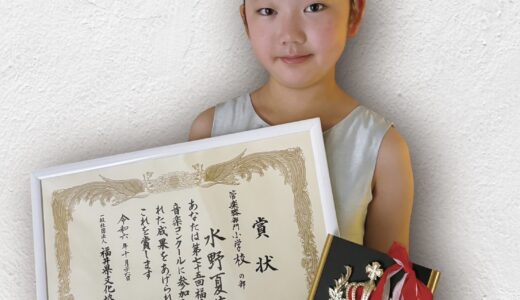 賞状
管楽器部門 小学校の部
水野夏
あなたは第七十五回福
音楽コンクールに参加
れた成果をあげられ
これを賞します
令和六年十月
一般社団法人 福井県文化